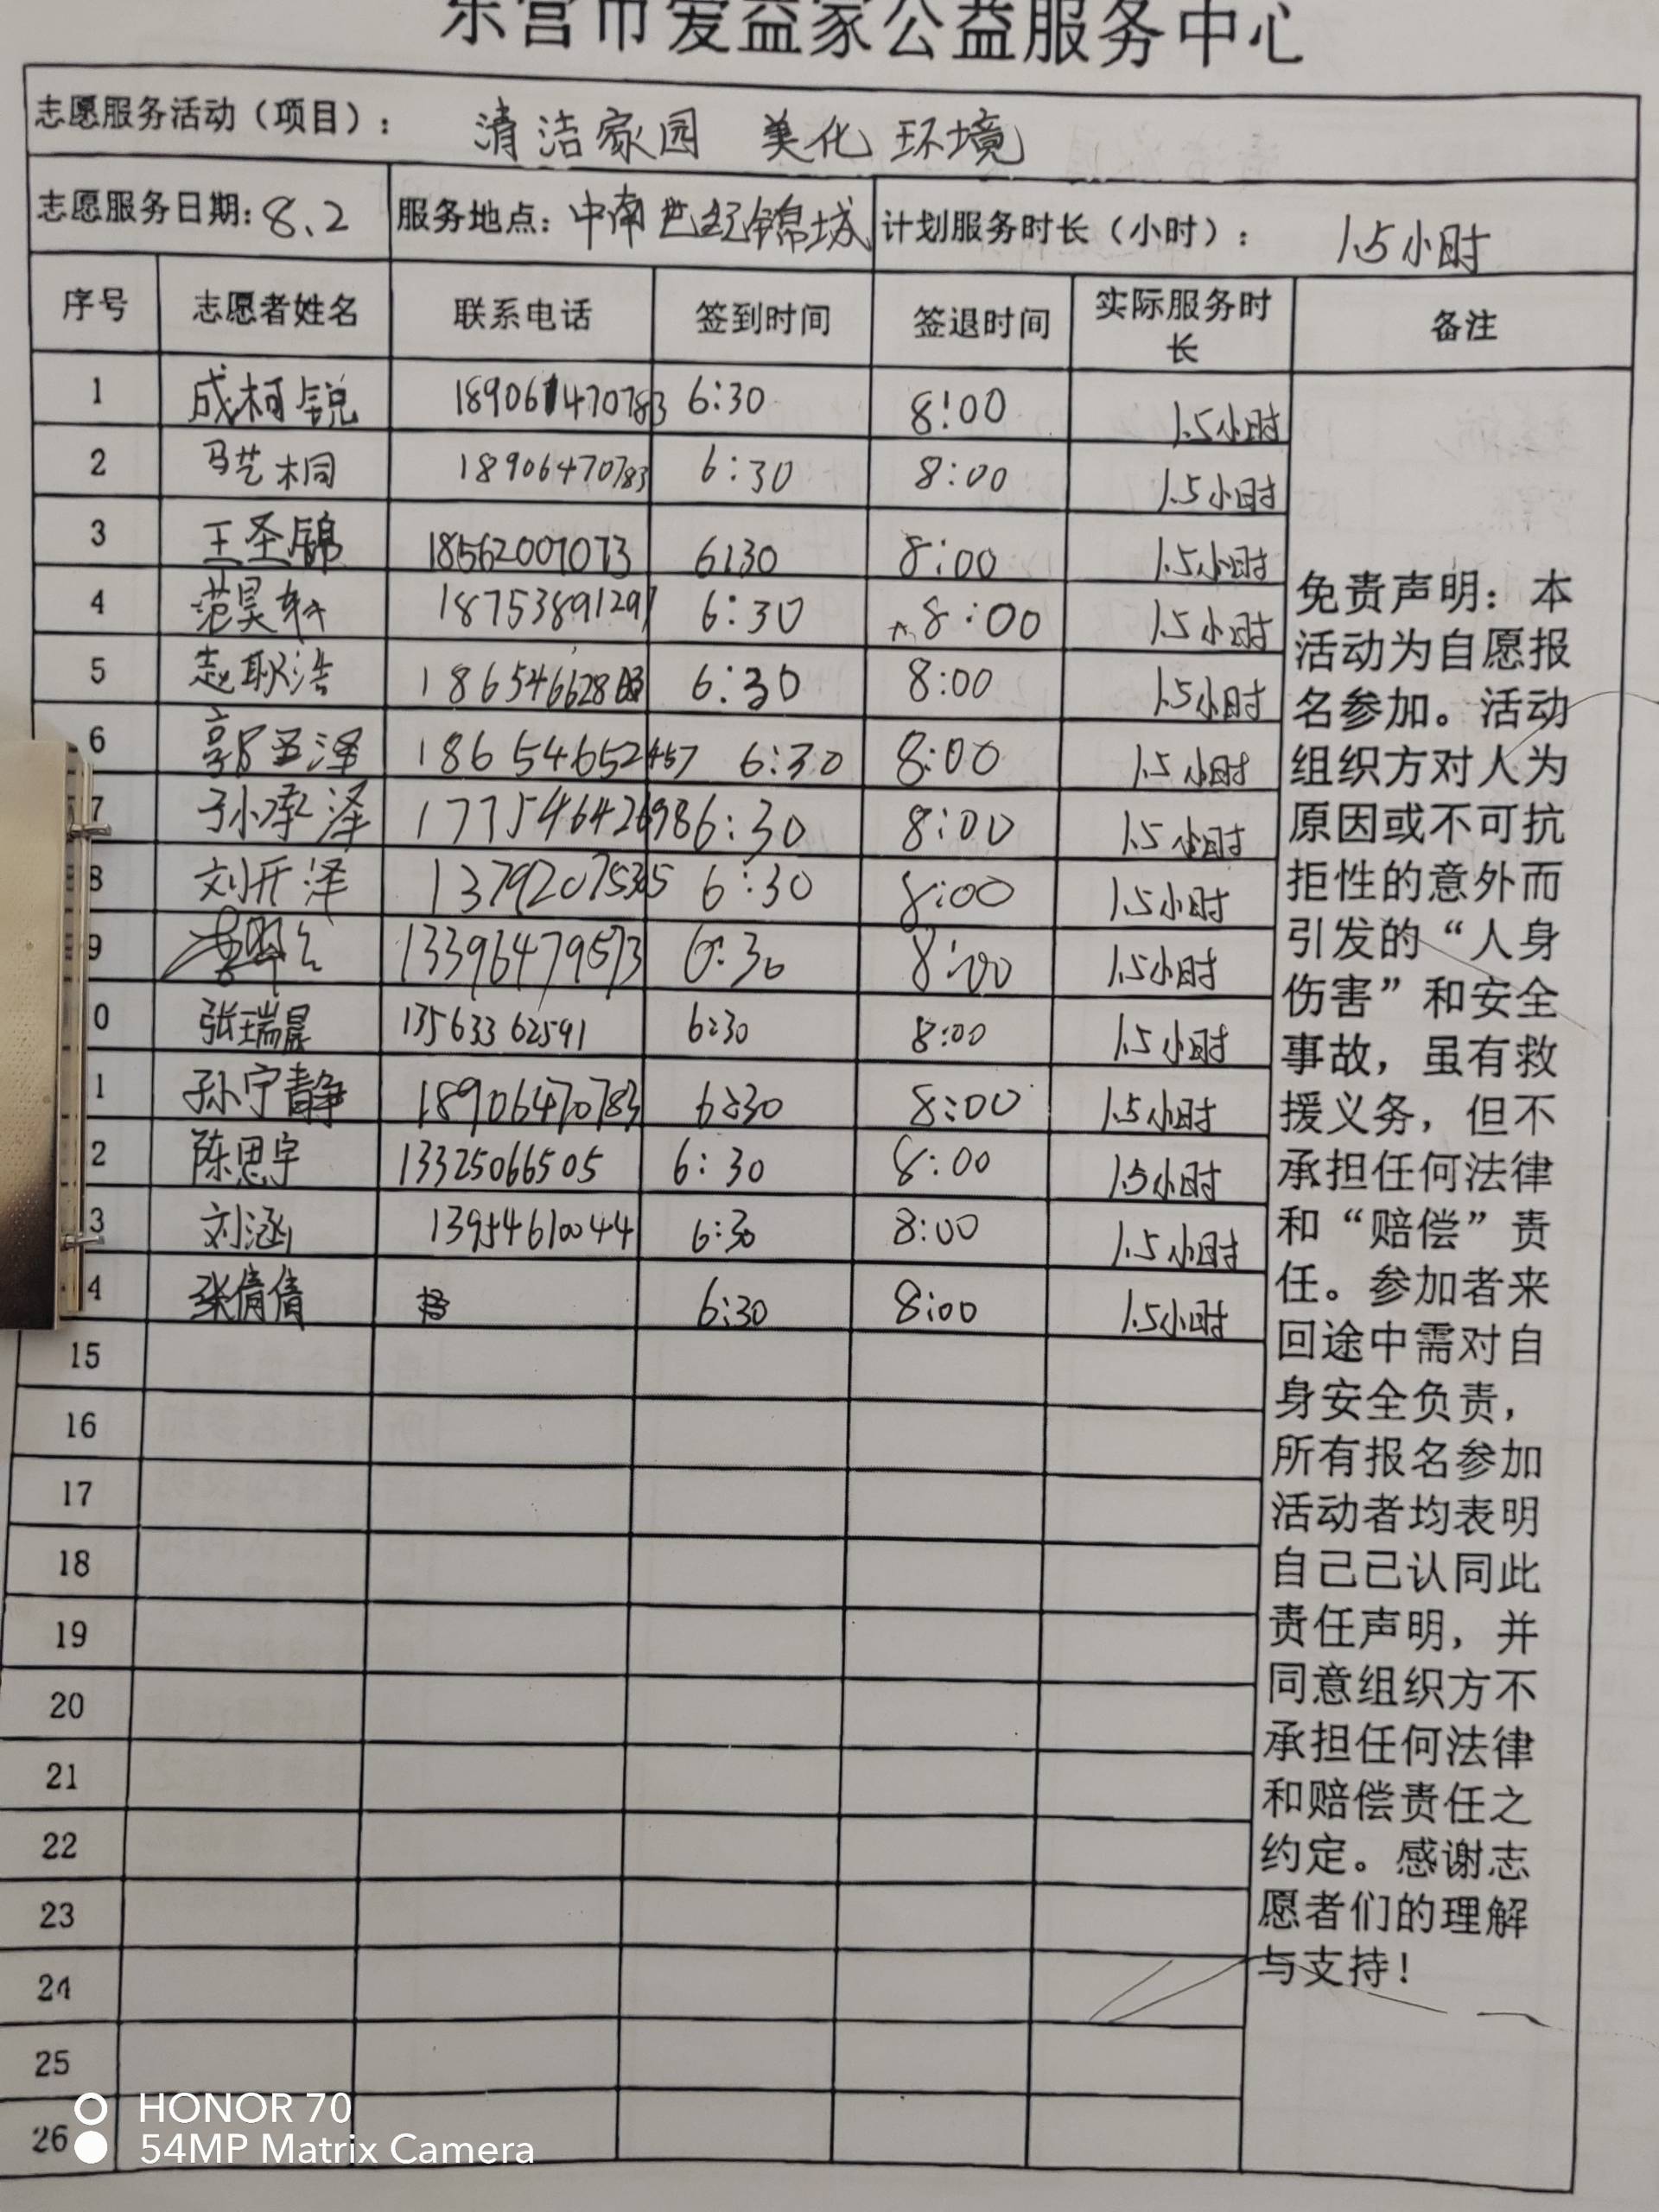 东营市爱益家公益服务中心
志愿服务活动（项目）： 清洁家园 美化环境
志愿服务日期：8.2 服务地点：中南世纪锦城 计划服务时长（小时）： 1.5小时
序号 志愿者姓名 联系电话 签到时间 签退时间 实际服务时长 备注
1 成柯锐 6:30 8:00 1.5小时
2 马艺桐 18906470783 6:30 8:00 1.5小时
3 王圣锦 18562007073 6:30 8:00 1.5小时
4 范昊轩 18753891297 6:30 8:00 1.5小时
5 赵耿浩 6:30 8:00 1.5小时
6 郭孟泽 18654652457 6:30 8:00 1.5小时
7 孙承泽 17754642698 6:30 8:00 1.5小时
8 刘开泽 6:30 8:00 1.5小时
9 13396479573 6:30 8:00 1.5小时
0 张瑞晨 13563362591 6:30 8:00 1.5小时
1 孙宁静 18906470783 6:30 8:00 1.5小时
2 陈思宇 13325066505 6:30 8:00 1.5小时
3 刘涵 13954610044 6:30 8:00 1.5小时
4 张倩倩 6:30 8:00 1.5小时
15
16
17
18
19
20
21
22
23
24
25
26
免责声明：本
活动为自愿报
名参加。活动
组织方对人为
原因或不可抗
拒性的意外而
引发的“人身
伤害”和安全
事故，虽有救
援义务，但不
承担任何法律
和“赔偿”责
任。参加者来
回途中需对自
身安全负责，
所有报名参加
活动者均表明
自己已认同此
责任声明，并
同意组织方不
承担任何法律
和赔偿责任之
约定。感谢志
愿者们的理解
与支持！
HONOR 70
54MP Matrix Camera